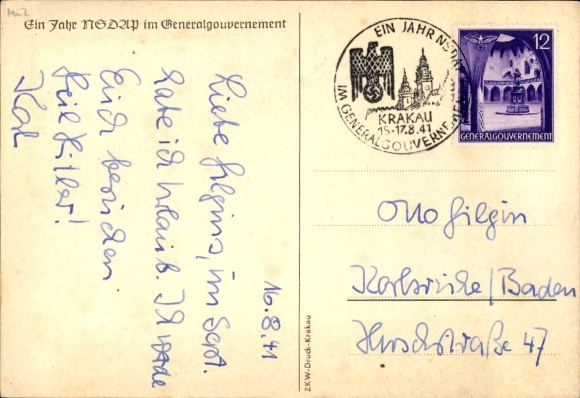 Ein Jahr NSDAP im Generalgouvernement
EIN JAHR NSDAP
IM GENERALGOUVERNEMENT
KRAKAU
15-17.8.41
12
GENERALGOUVERNEMENT
16.8.41
Liebe Gilgins, im Sept.
habe ich Urlaub. Ich werde
Euch besuchen
Heil Hitler!
Karl
ZKW-Druck-Krakau
Otto Gilgin
Karlsruhe/Baden
Hirschstraße 47